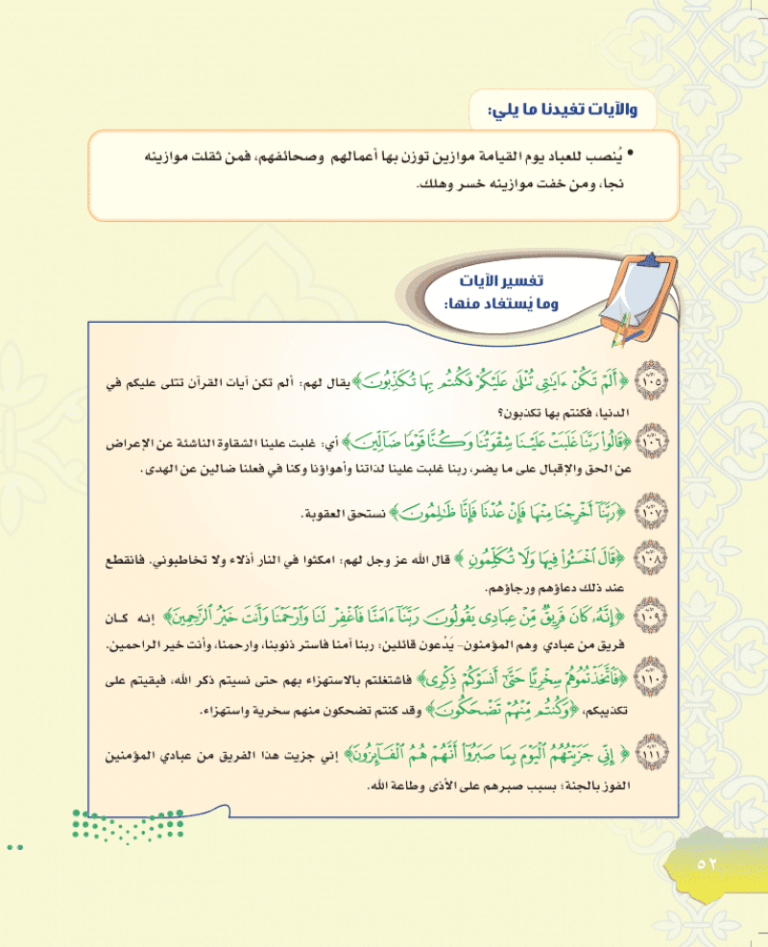 والآيات تفيدنا ما يلي:
• يُنصب للعباد يوم القيامة موازين توزن بها أعمالهم وصحائفهم، فمن ثقلت موازينه
نجا، ومن خفت موازينه خسر وهلك.
تفسير الآيات
وما يُستفاد منها:
١٠٥ ﴿أَلَمْ تَكُنْ ءَايَٰتِى تُتْلَىٰ عَلَيْكُمْ فَكُنتُم بِهَا تُكَذِّبُونَ﴾ يقال لهم: ألم تكن آيات القرآن تتلى عليكم في
الدنيا، فكنتم بها تكذبون؟
١٠٦ ﴿قَالُوا۟ رَبَّنَا غَلَبَتْ عَلَيْنَا شِقْوَتُنَا وَكُنَّا قَوْمًا ضَآلِّينَ﴾ أي: غلبت علينا الشقاوة الناشئة عن الإعراض
عن الحق والإقبال على ما يضر، ربنا غلبت علينا لذاتنا وأهواؤنا وكنا في فعلنا ضالين عن الهدى.
١٠٧ ﴿رَبَّنَآ أَخْرِجْنَا مِنْهَا فَإِنْ عُدْنَا فَإِنَّا ظَٰلِمُونَ﴾ نستحق العقوبة.
١٠٨ ﴿قَالَ ٱخْسَـُٔوا۟ فِيهَا وَلَا تُكَلِّمُونِ﴾ قال الله عز وجل لهم: امكثوا في النار أذلاء ولا تخاطبوني. فانقطع
عند ذلك دعاؤهم ورجاؤهم.
١٠٩ ﴿إِنَّهُۥ كَانَ فَرِيقٌ مِّنْ عِبَادِى يَقُولُونَ رَبَّنَآ ءَامَنَّا فَٱغْفِرْ لَنَا وَٱرْحَمْنَا وَأَنتَ خَيْرُ ٱلرَّٰحِمِينَ﴾ إنه كان
فريق من عبادي وهم المؤمنون- يَدْعون قائلين: ربنا آمنا فاستر ذنوبنا، وارحمنا، وأنت خير الراحمين.
١١٠ ﴿فَٱتَّخَذْتُمُوهُمْ سِخْرِيًّا حَتَّىٰٓ أَنسَوْكُمْ ذِكْرِى﴾ فاشتغلتم بالاستهزاء بهم حتى نسيتم ذكر الله، فبقيتم على
تكذيبكم، ﴿وَكُنتُم مِّنْهُمْ تَضْحَكُونَ﴾ وقد كنتم تضحكون منهم سخرية واستهزاء.
١١١ ﴿إِنِّى جَزَيْتُهُمُ ٱلْيَوْمَ بِمَا صَبَرُوٓا۟ أَنَّهُمْ هُمُ ٱلْفَآئِزُونَ﴾ إني جزيت هذا الفريق من عبادي المؤمنين
الفوز بالجنة؛ بسبب صبرهم على الأذى وطاعة الله.
٥٢